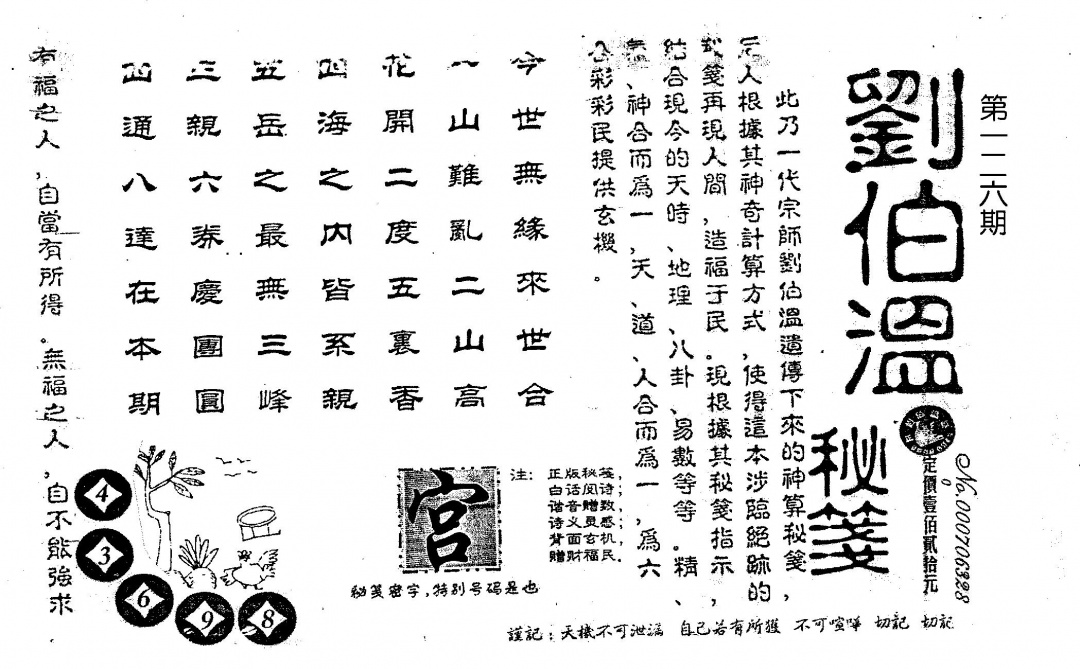 第一二六期
劉伯溫
秘箋
No.000706328
定價壹佰貳拾元
此乃一代宗師劉伯溫遺傳下來的神算秘箋，
人根據其神奇計算方式，使得這本涉臨絕跡的
箋再現人間，造福于民。現根據其秘箋指示，
結合現今的天時、地理、八卦、易數等等。精、
、神合而爲一，天、道、人合而爲一，爲六
合彩彩民提供玄機。
今世無緣來世合
八山難亂二山高
花開二度五裏香
四海之內皆系親
五岳之最無三峰
三親六券慶團圓
四通八達在本期
有福之人，自當有所得。無福之人，自不能強求
注：
正版秘笺，
白话阅诗；
谐音赠数，
诗义灵感；
背面玄机，
赠财福民。
宫
秘笈密字，特别号码是也
4
3
6
9
8
謹記：天機不可泄漏 自己若有所獲 不可喧嘩 切記 切記